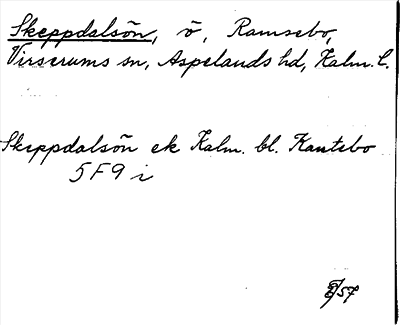 Skeppdalsön, ö, Ramsebo,
Virserums sn, Aspelands hd, Kalm. l.
Skeppdalsön ek Kalm. bl. Kantebo
5F9 i
/57